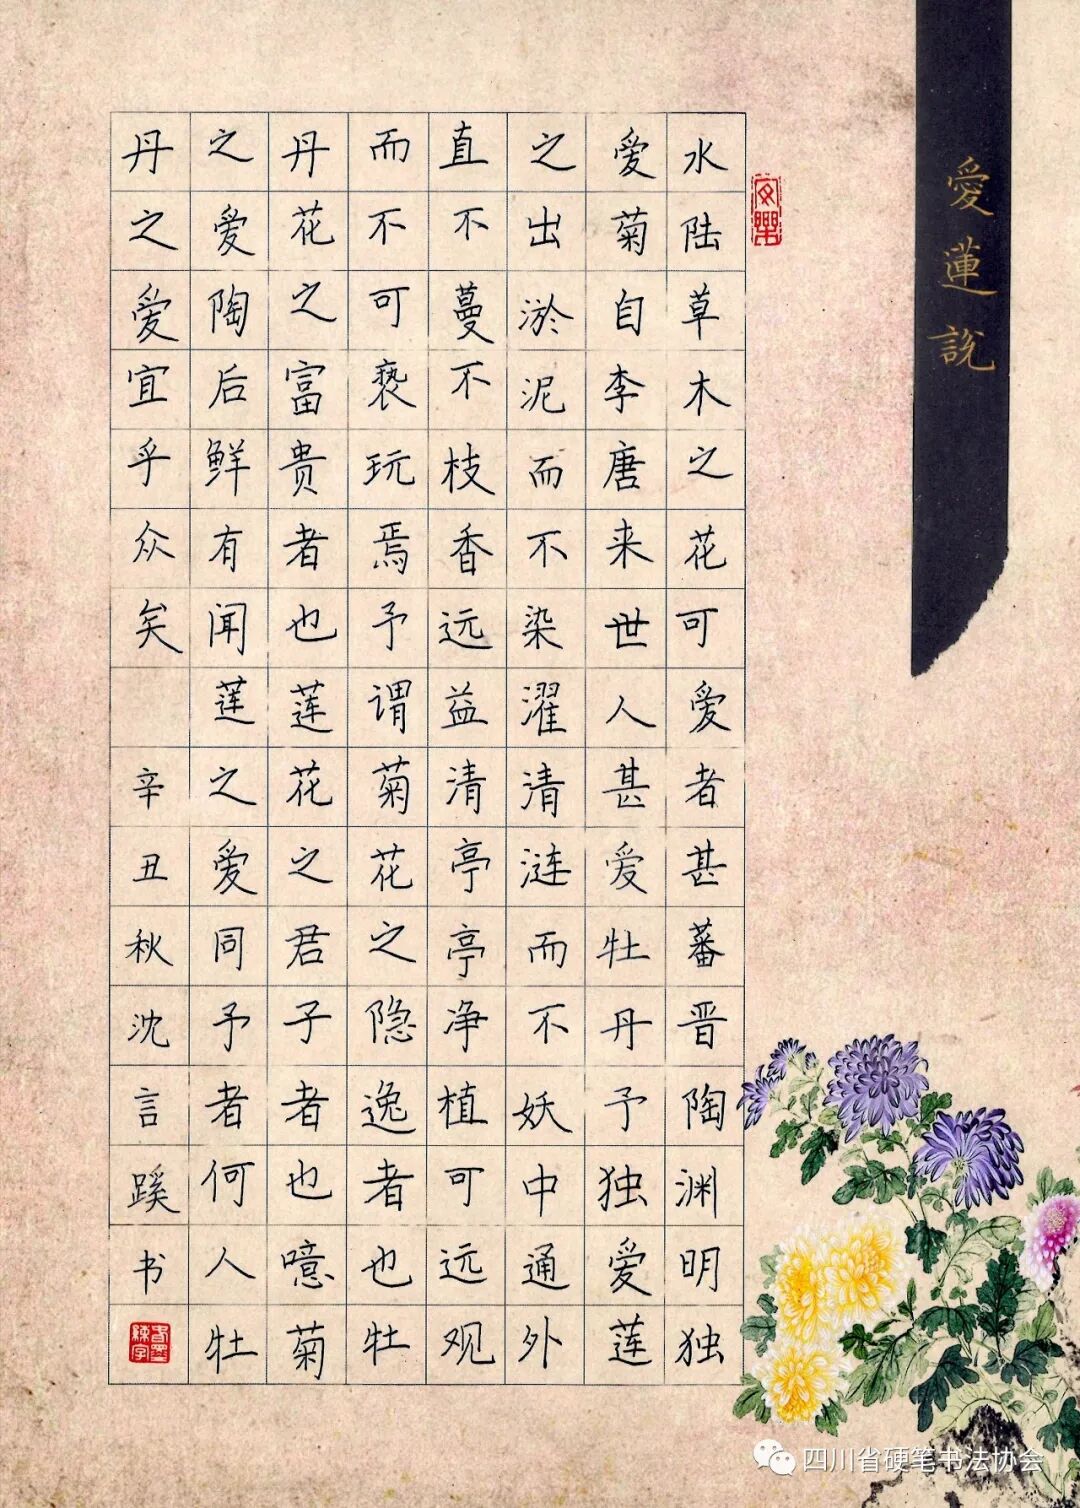 愛蓮說
水陆草木之花可爱者甚蕃晋陶渊明独
爱菊自李唐来世人甚爱牡丹予独爱莲
之出淤泥而不染濯清涟而不妖中通外
直不蔓不枝香远益清亭亭净植可远观
而不可亵玩焉予谓菊花之隐逸者也牡
丹花之富贵者也莲花之君子者也噫菊
之爱陶后鲜有闻莲之爱同予者何人牡
丹之爱宜乎众矣 辛丑秋沈言蹊书
四川省硬笔书法协会